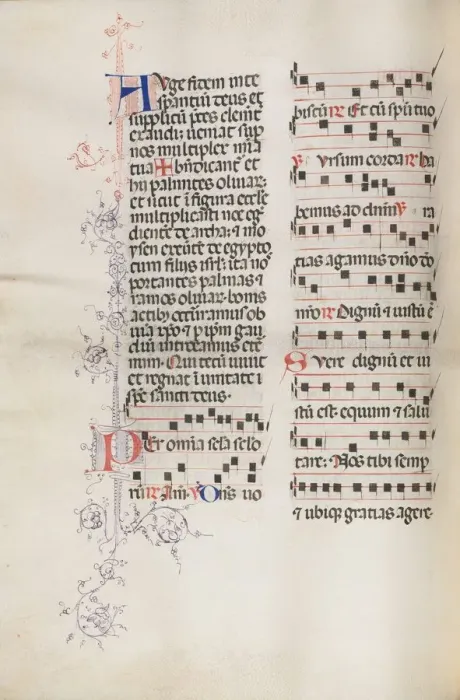 Auge fidem in te
sperantiu deus et
supplicu pces clemt
exaudi: ueniat sup
nos multiplex mia
tua ✠ bndicant et
hii palmites oliuar:
et sicut i figura eccle
multiplicasti noe eg
diente de archa: et mo
ysen exeute de egypto
cum filiis isrl: ita nos
portantes palmas et
ramos oliuar. bonis
actib; occuramus ob
uia xpo et p ipm gau
diu introeamus ete
num. Qui tecu uiuit
et regnat i unitate i
spc sancti deus.
Per omia scla sclo
ru R Am. V Dns uo
biscu R Et cu spu tuo
V Sursum corda R ha
bemus ad dnm V Gra
tias agamus dno do
nro R Dignu et iustu e
Vere dignu et iu
stu est equum et salu
tare: Nos tibi semp
et ubiq gratias agere.